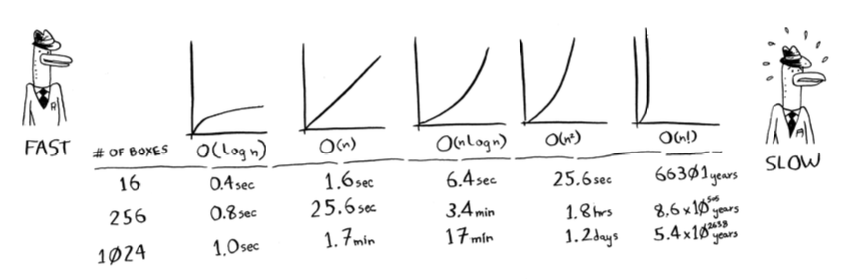 FAST
SLOW
# OF BOXES O(log n) O(n) O(n log n) O(n²) O(n!)
16 0.4sec 1.6sec 6.4sec 25.6sec 66301 years
256 0.8sec 25.6sec 3.4min 1.8hrs 8.6x10⁵⁰⁵ years
1024 1.0sec 1.7min 17min 1.2days 5.4x10²⁶³⁸ years